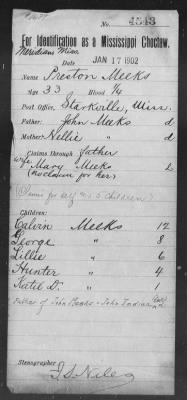 No. 4543
For Identification as a Mississippi Choctaw.
Meridian Miss.
Date JAN 17 1902
Name Preston Meeks
Age 33 Blood 1/4
Post Office, Starkville, Miss.
Father: John Meeks d
Mother: Nellie " d
Claims through father
wife Mary Meeks
(no claim for her)
(Claims for self & 5 children)
Children:
Calvin Meeks 12
George " 8
Lillie " 6
Hunter " 4
Katil D. " 1
Father of John Meeks - John Indian
Stenographer
F.S. Niles